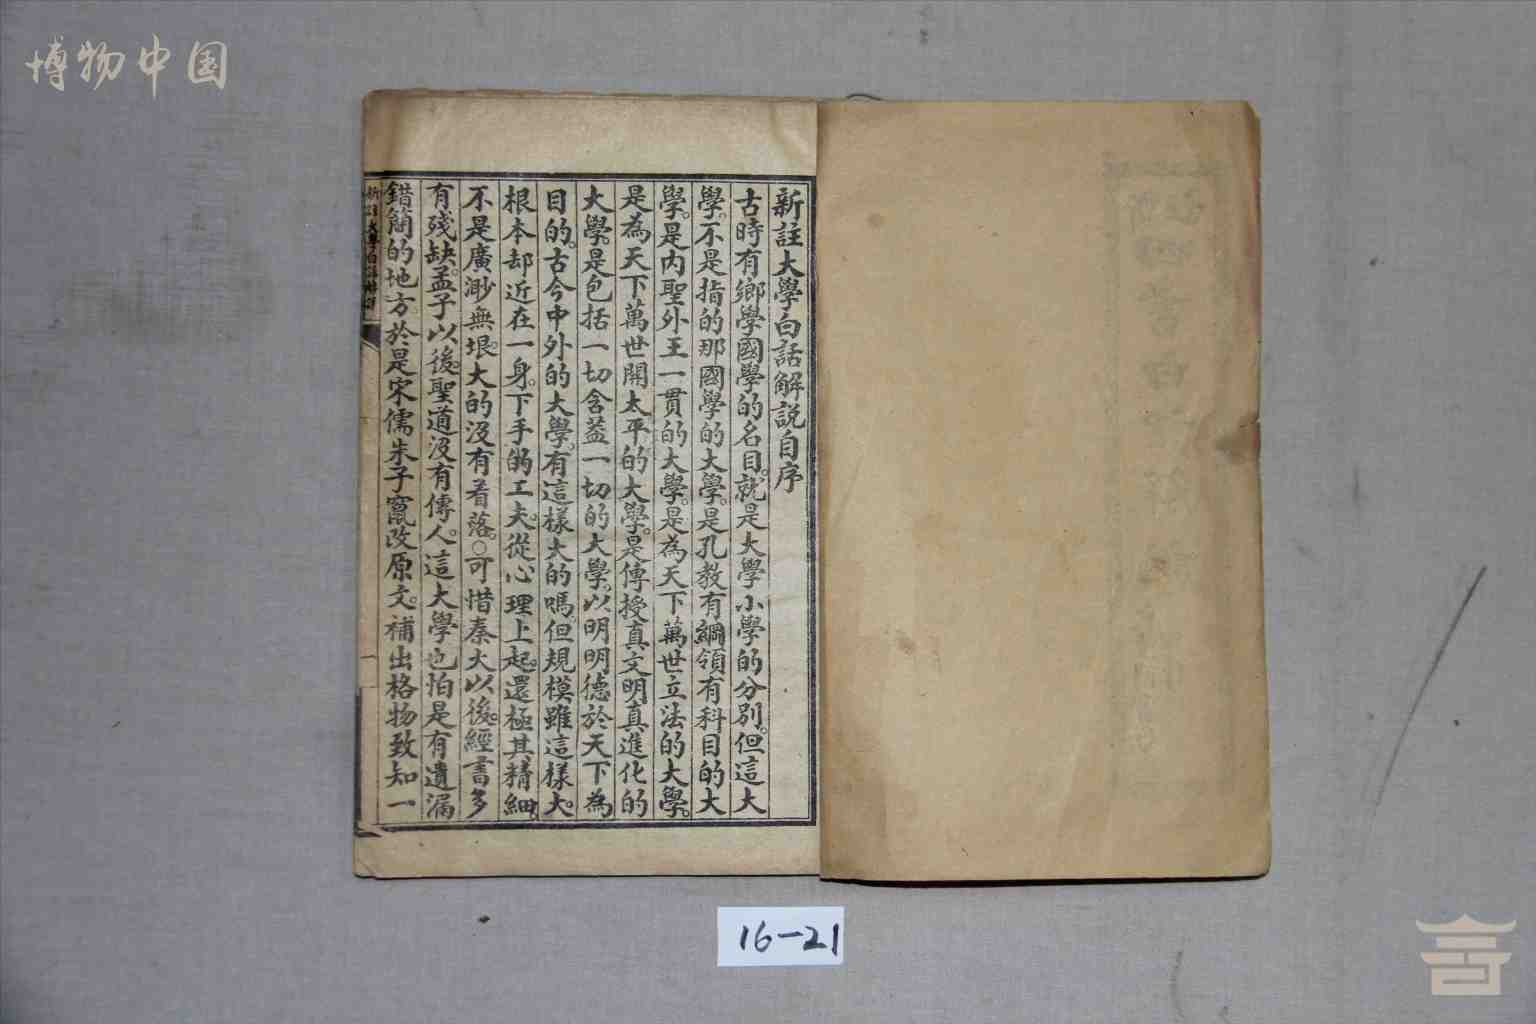 博物中国
新註大學白話解説自序
古時有鄉學國學的名目。就是大學小學的分别。但這大
學。不是指的那國學的大學。是孔教有綱領有科目的大
學。是内聖外王一貫的大學。是為天下萬世立法的大學。
是為天下萬世開太平的大學。是傳授真文明。真進化的
大學。是包括一切含蓋一切的大學。以明明德於天下為
目的。古今中外的大學。有這樣大的嗎。但規模雖這樣大。
根本却近在一身。下手的工夫。從心理上起。還極其精細。
不是廣渺無垠。大的没有着落。○可惜秦火以後。經書多
有殘缺。孟子以後。聖道没有傳人。這大學也怕是有遺漏
錯簡的地方。於是宋儒朱子竄改原文。補出格物致知一
16-21